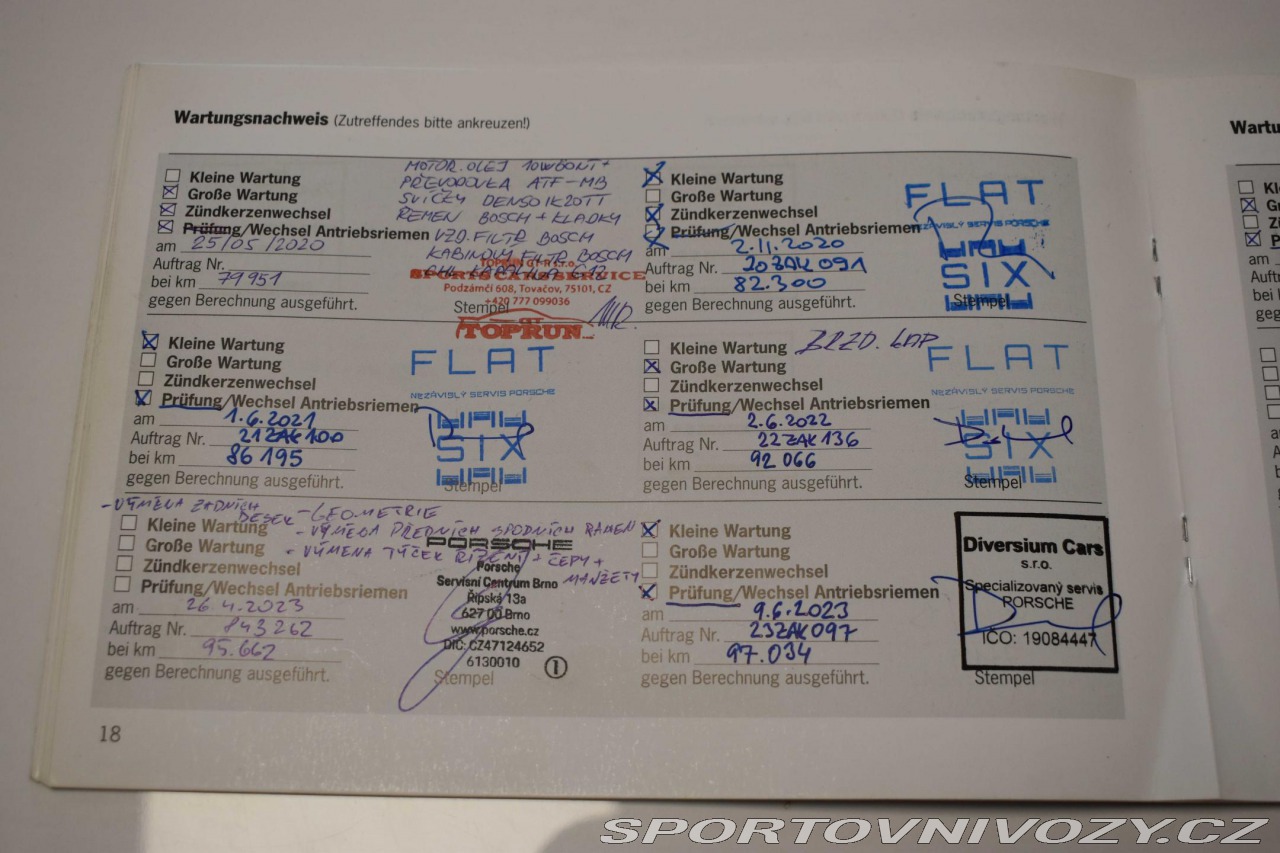 Wartungsnachweis (Zutreffendes bitte ankreuzen!)
Kleine Wartung
Große Wartung
Zündkerzenwechsel
Prüfung/Wechsel Antriebsriemen
am 25/05/2020
Auftrag Nr.
bei km 79951
gegen Berechnung ausgeführt.
Stempel
MOTOR. OLEJ 10W60NT+
PŘEVODOVKA ATF-MB
SVÍČKY DENSO IK20TT
ŘEMEN BOSCH + KLADKY
VZD. FILTR BOSCH
KABINOVÝ FILTR BOSCH
SPORTS CARS SERVICE
Podzámčí 608, Tovačov, 75101, CZ
+420 777 099036
TOPRUN
Kleine Wartung
Große Wartung
Zündkerzenwechsel
Prüfung/Wechsel Antriebsriemen
am 2.11.2020
Auftrag Nr. 20ZAK091
bei km 82.300
gegen Berechnung ausgeführt.
Stempel
FLAT
NEZÁVISLÝ SERVIS PORSCHE
SIX
Kleine Wartung
Große Wartung
Zündkerzenwechsel
Prüfung/Wechsel Antriebsriemen
am 1.6.2021
Auftrag Nr. 21ZAK100
bei km 86195
gegen Berechnung ausgeführt.
Stempel
FLAT
NEZÁVISLÝ SERVIS PORSCHE
SIX
Kleine Wartung BRZD. KAP
Große Wartung
Zündkerzenwechsel
Prüfung/Wechsel Antriebsriemen
am 2.6.2022
Auftrag Nr. 22ZAK136
bei km 92 066
gegen Berechnung ausgeführt.
Stempel
FLAT
NEZÁVISLÝ SERVIS PORSCHE
SIX
- VÝMĚNA ZADNÍCH DESEK
- GEOMETRIE
- VÝMĚNA PŘEDNÍCH SPODNÍCH RAMEN
- VÝMĚNA TYČEK ŘÍZENÍ + ČEPY + MANŽETY
Kleine Wartung
Große Wartung
Zündkerzenwechsel
Prüfung/Wechsel Antriebsriemen
am 26.4.2023
Auftrag Nr. 843262
bei km 95.662
gegen Berechnung ausgeführt.
Stempel
PORSCHE
Porsche
Servisní Centrum Brno
Řipská 13a
627 00 Brno
www.porsche.cz
DIČ: CZ47124652
6130010 1
Kleine Wartung
Große Wartung
Zündkerzenwechsel
Prüfung/Wechsel Antriebsriemen
am 9.6.2023
Auftrag Nr. 23ZAK097
bei km 97.034
gegen Berechnung ausgeführt.
Stempel
Diversium Cars
s.r.o.
Specializovaný servis
PORSCHE
ICO: 19084447
18
SPORTOVNIVOZY.CZ